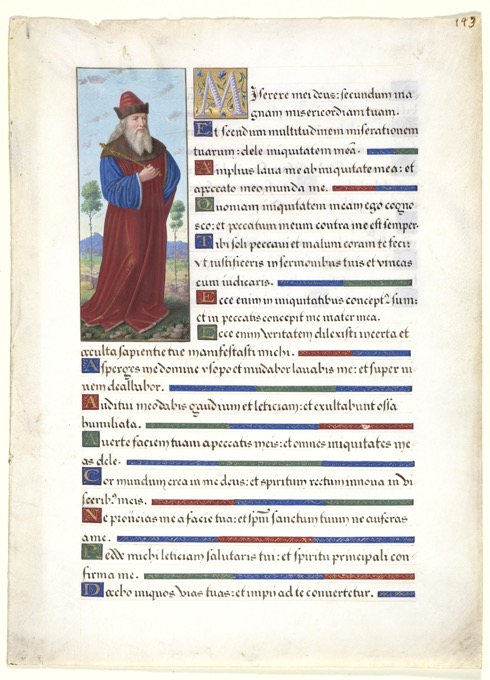 193
Miserere mei deus: secundum ma
gnam misericordiam tuam.
Et secundum multitudinem miserationem
tuarum: dele iniquitatem meã.
Amplius laua me ab iniquitate mea: et
a peccato meo munda me.
Quoniam iniquitatem meam ego cogno
sco: et peccatum meum contra me est semper.
Tibi soli peccaui et malum coram te feci:
vt iustificeris in sermonibus tuis et vincas
cum iudicaris.
Ecce enim in iniquitatibus concept9 sum:
et in peccatis concepit me mater mea.
Ecce enim veritatem dilexisti incerta et
occulta sapientie tue manifestasti michi.
Asperges me domine ysopo et mũdabor lauabis me: et super ni
uem dealbabor.
Auditui meo dabis gaudium et leticiam: et exultabunt ossa
humiliata.
Auerte faciem tuam a peccatis meis: et omnes iniquitates me
as dele.
Cor mundum crea in me deus: et spiritum rectum innoua in vi
scerib9 meis.
Ne proiicias me a facie tua: et spm̃ sanctum tuum ne auferas
a me.
Redde michi leticiam salutaris tui: et spiritu principali con
firma me.
Docebo iniquos vias tuas: et impii ad te conuertetur.